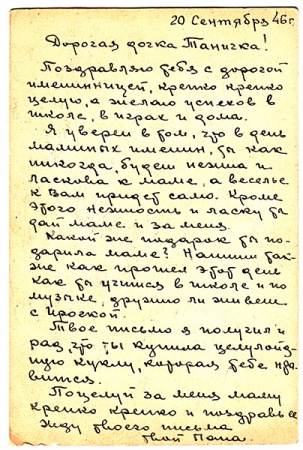 20 Сентября 46 г.
Дорогая дочка Таничка!
Поздравляю тебя с дорогой
именинницей, крепко крепко
целую, а желаю успехов в
школе, в играх и дома.
Я уверен в том, что в день
маминых имемин, ты как
никогда, будеш нежна и
ласкова к маме, а веселье
к Вам придет само. Кроме
этого нежность и ласку ты
дай маме и за меня.
Какой же подарок ты по-
дарила маме? Напиши так-
же как прошел этот день
как ты учишся в школе и по
музыке, дружно ли живеш
с Ирочкой.
Твое письмо я получил и
рад, что ты купила целулойд-
ную куклу, которая тебе нра-
вится.
Поцелуй за меня маму
крепко крепко и поздравь ее
жду твоего письма
твой Папа.